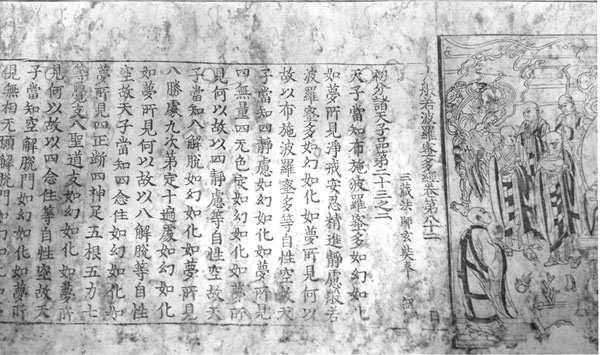 大般若波羅蜜多經卷第八十二
三藏法師玄奘奉 詔
初分諸天子品第二十三之二
天子當知布施波羅蜜多如幻如化
如夢所見淨戒安忍精進靜慮般若
波羅蜜多如幻如化如夢所見何以
故以布施波羅蜜多等自性空故天
子當知四靜慮如幻如化如夢所見
四無量四无色定如幻如化如夢所
見何以故以四靜慮等自性空故天
子當知八解脫如幻如化如夢所見
八勝處九次第定十遍處如幻如化
如夢所見何以故以八解脫等自性
空故天子當知四念住如幻如化如
夢所見四正斷四神足五根五力七
等覺支八聖道支如幻如化如夢所
見何以故以四念住等自性空故天
子當知空解脫門如幻如化如夢所
見無相无願解脫門如幻如化如